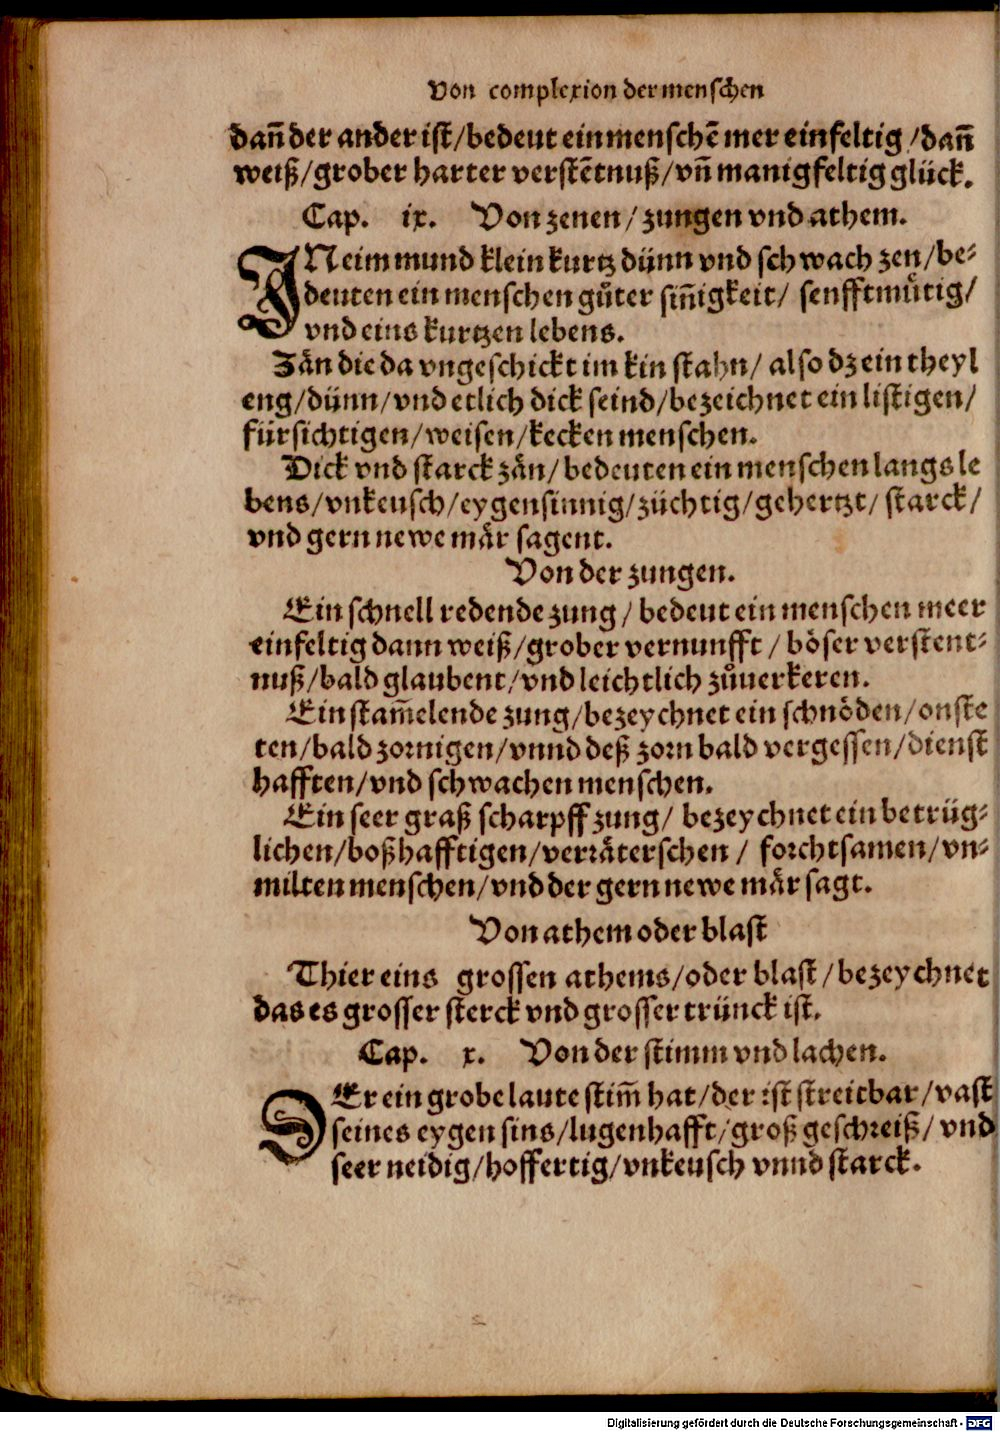 Von complexion der menschen
dañ der ander ist/bedeut ein menschẽ mer einfeltig/dañ
weiß/grober harter verstẽtnuß/vñ manigfeltig glück.
Cap. ix. Von zenen/zungen vnd athem.
IN eim mund klein kurtz dünn vnd schwach zen/be-
deuten ein menschen gůter siñigkeit/ senfftmütig/
vnd eins kurtzen lebens.
Zän die da vngeschickt im kin stahn/ also dz ein theyl
eng/dünn/vnd etlich dick seind/bezeichnet ein listigen/
fürsichtigen/weisen/kecken menschen.
Dick vnd starck zän/bedeuten ein menschen langs le
bens/vnkeusch/eygensinnig/züchtig/gehertzt/ starck/
vnd gern newe mär sagent.
Von der zungen.
Ein schnell redende zung/ bedeut ein menschen meer
einfeltig dann weiß/grober vernunfft/ böser verstent-
nuß/bald glaubent/vnd leichtlich zůuerkeren.
Ein stam̃elende zung/bezeychnet ein schnöden/onste
ten/bald zornigen/vnnd deß zorn bald vergessen/dienst
hafften/vnd schwachen menschen.
Ein seer graß scharpff zung/ bezeychnet ein betrüg-
lichen/boßhafftigen/verräterschen/ forchtsamen/vn-
milten menschen/vnd der gern newe mär sagt.
Von athem oder blast
Thier eins grossen athems/oder blast/bezeychnet
das es grosser sterck vnd grosser trünck ist.
Cap. x. Von der stimm vnd lachen.
DEr ein grobe laute stim̃ hat/der ist streitbar/vast
seines eygen sins/lugenhafft/groß geschreiß/ vnd
seer neidig/hoffertig/vnkeusch vnnd starck.
Digitalisierung gefördert durch die Deutsche Forschungsgemeinschaft - DFG